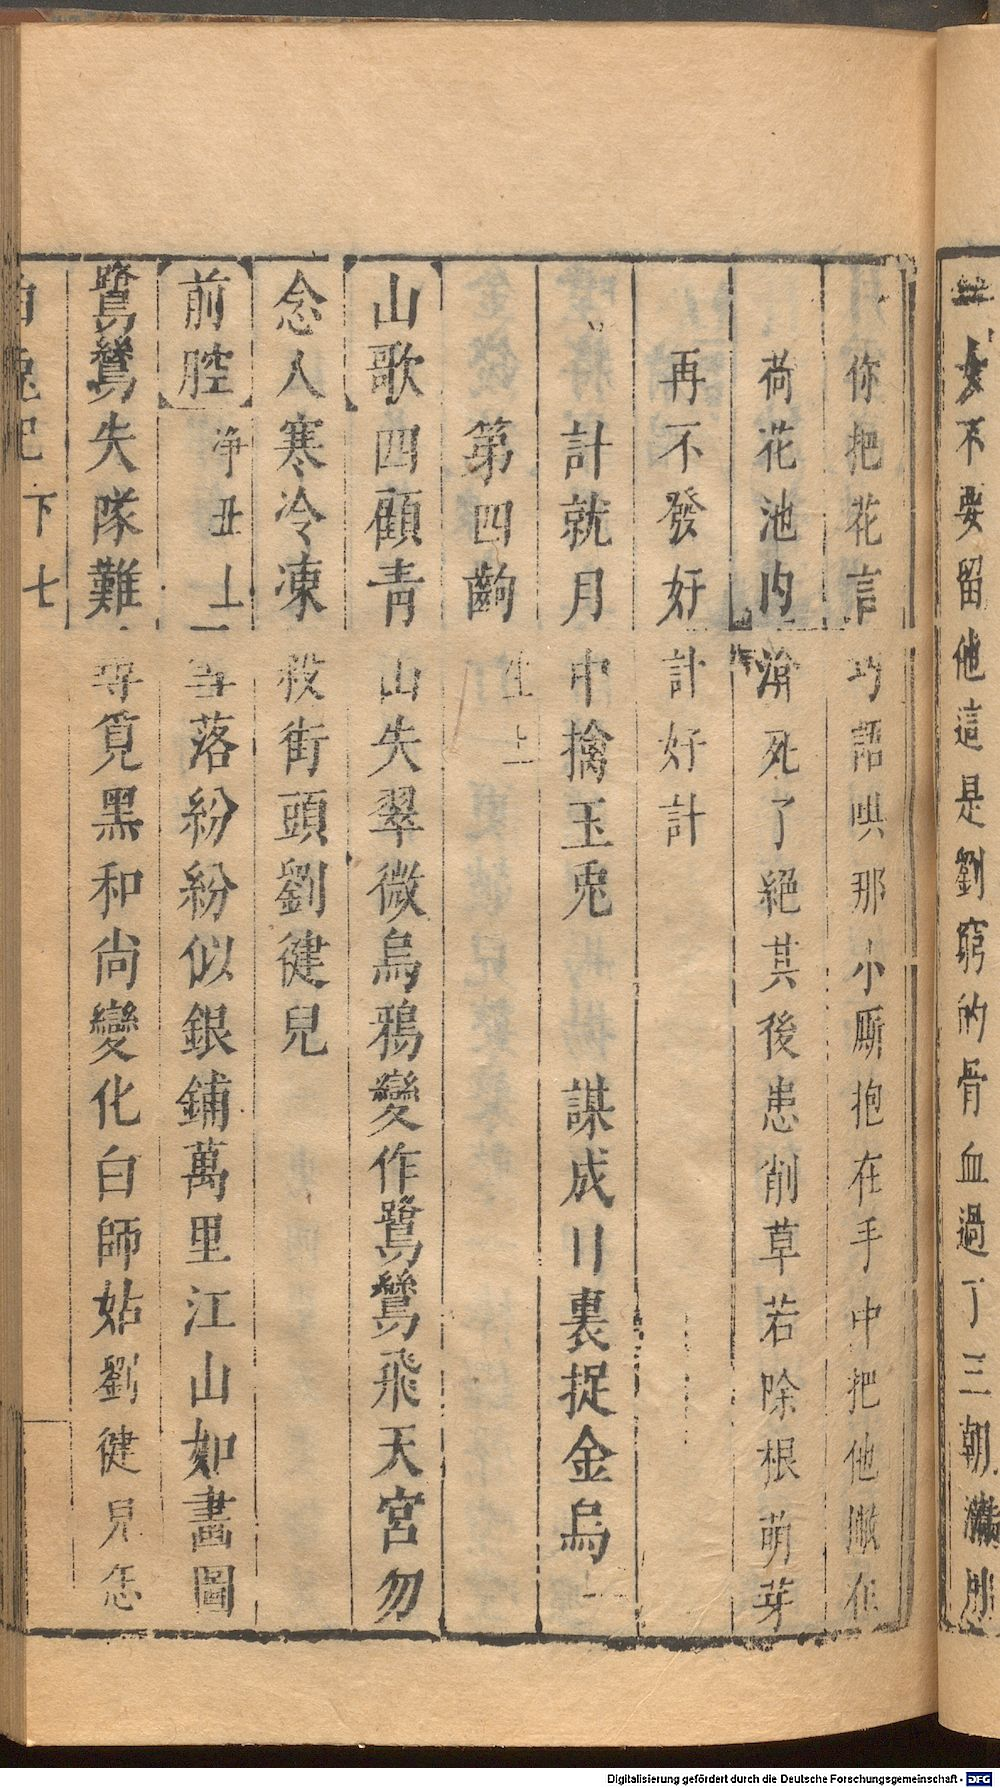 女不要留他這是劉窮的骨血過了三朝滿月
你把花言巧語哄那小厮抱在手中把他撇在
荷花池内渰死了絕其後患削草若除根萌芽
再不發好計好計
計就月中擒玉兎 謀成日裏捉金烏
第四齣
生上
山歌四顧青山失翠微烏鴉變作鷺鷥飛天宮勿
念人寒冷凍殺街頭劉健兒
前腔淨丑上雪落紛紛似銀鋪萬里江山如畵圖
鷺鷥失隊難尋覓黑和尚變化白師姑劉健兒怎
白兎記 下 七
Digitalisierung gefördert durch die Deutsche Forschungsgemeinschaft - DFG